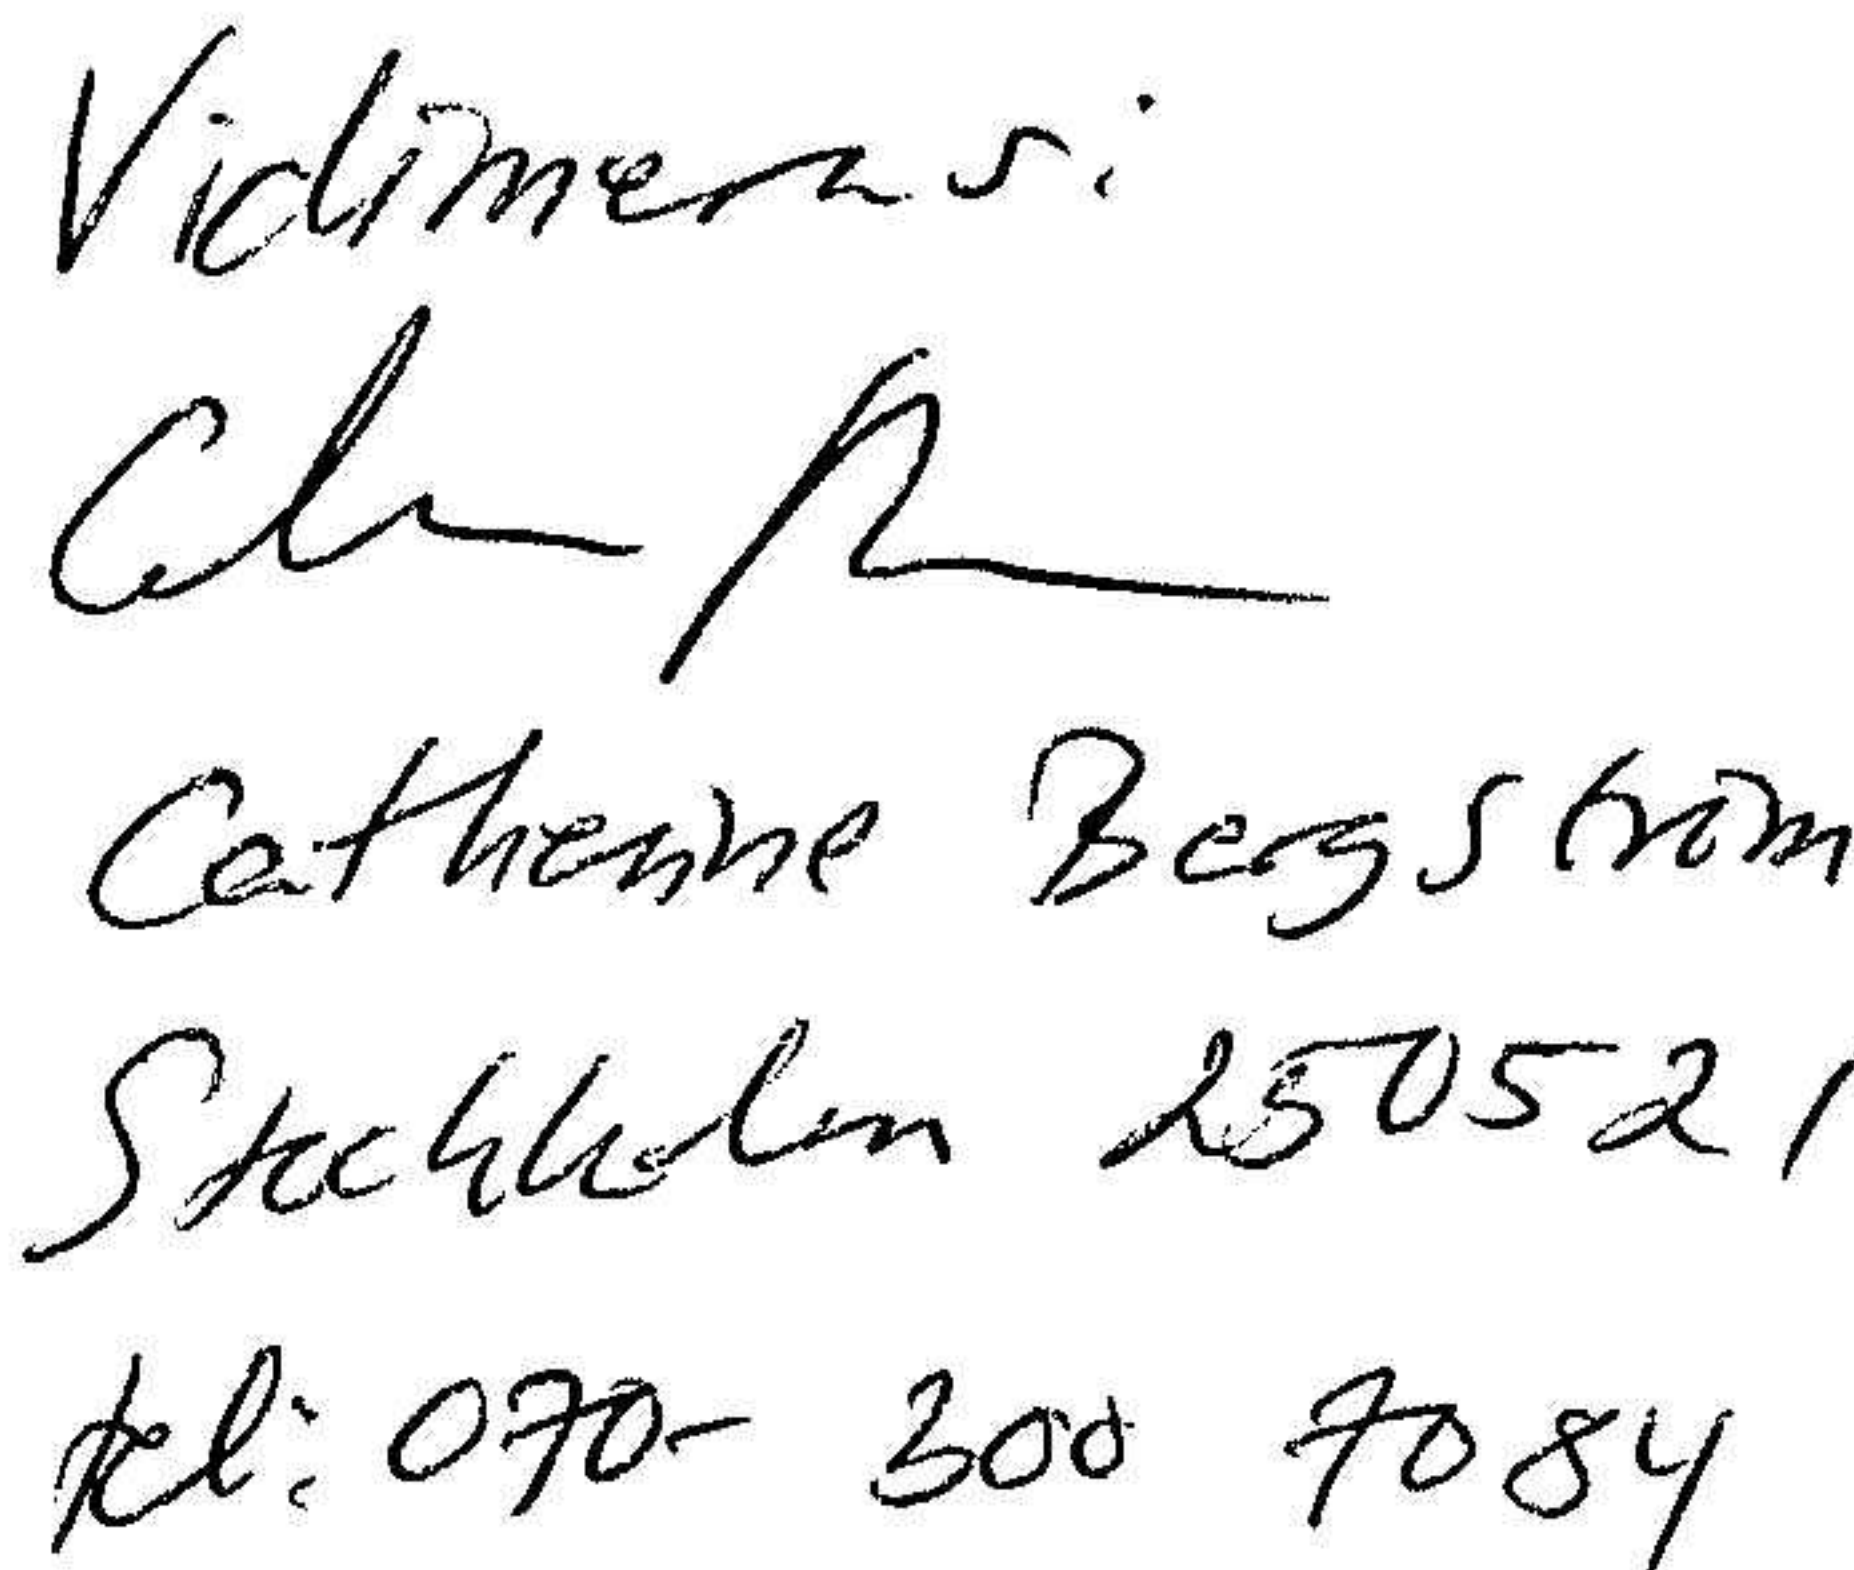 Vidimeras:
Catherine Bergström
Stockholm 250521
tel: 070- 300 7084